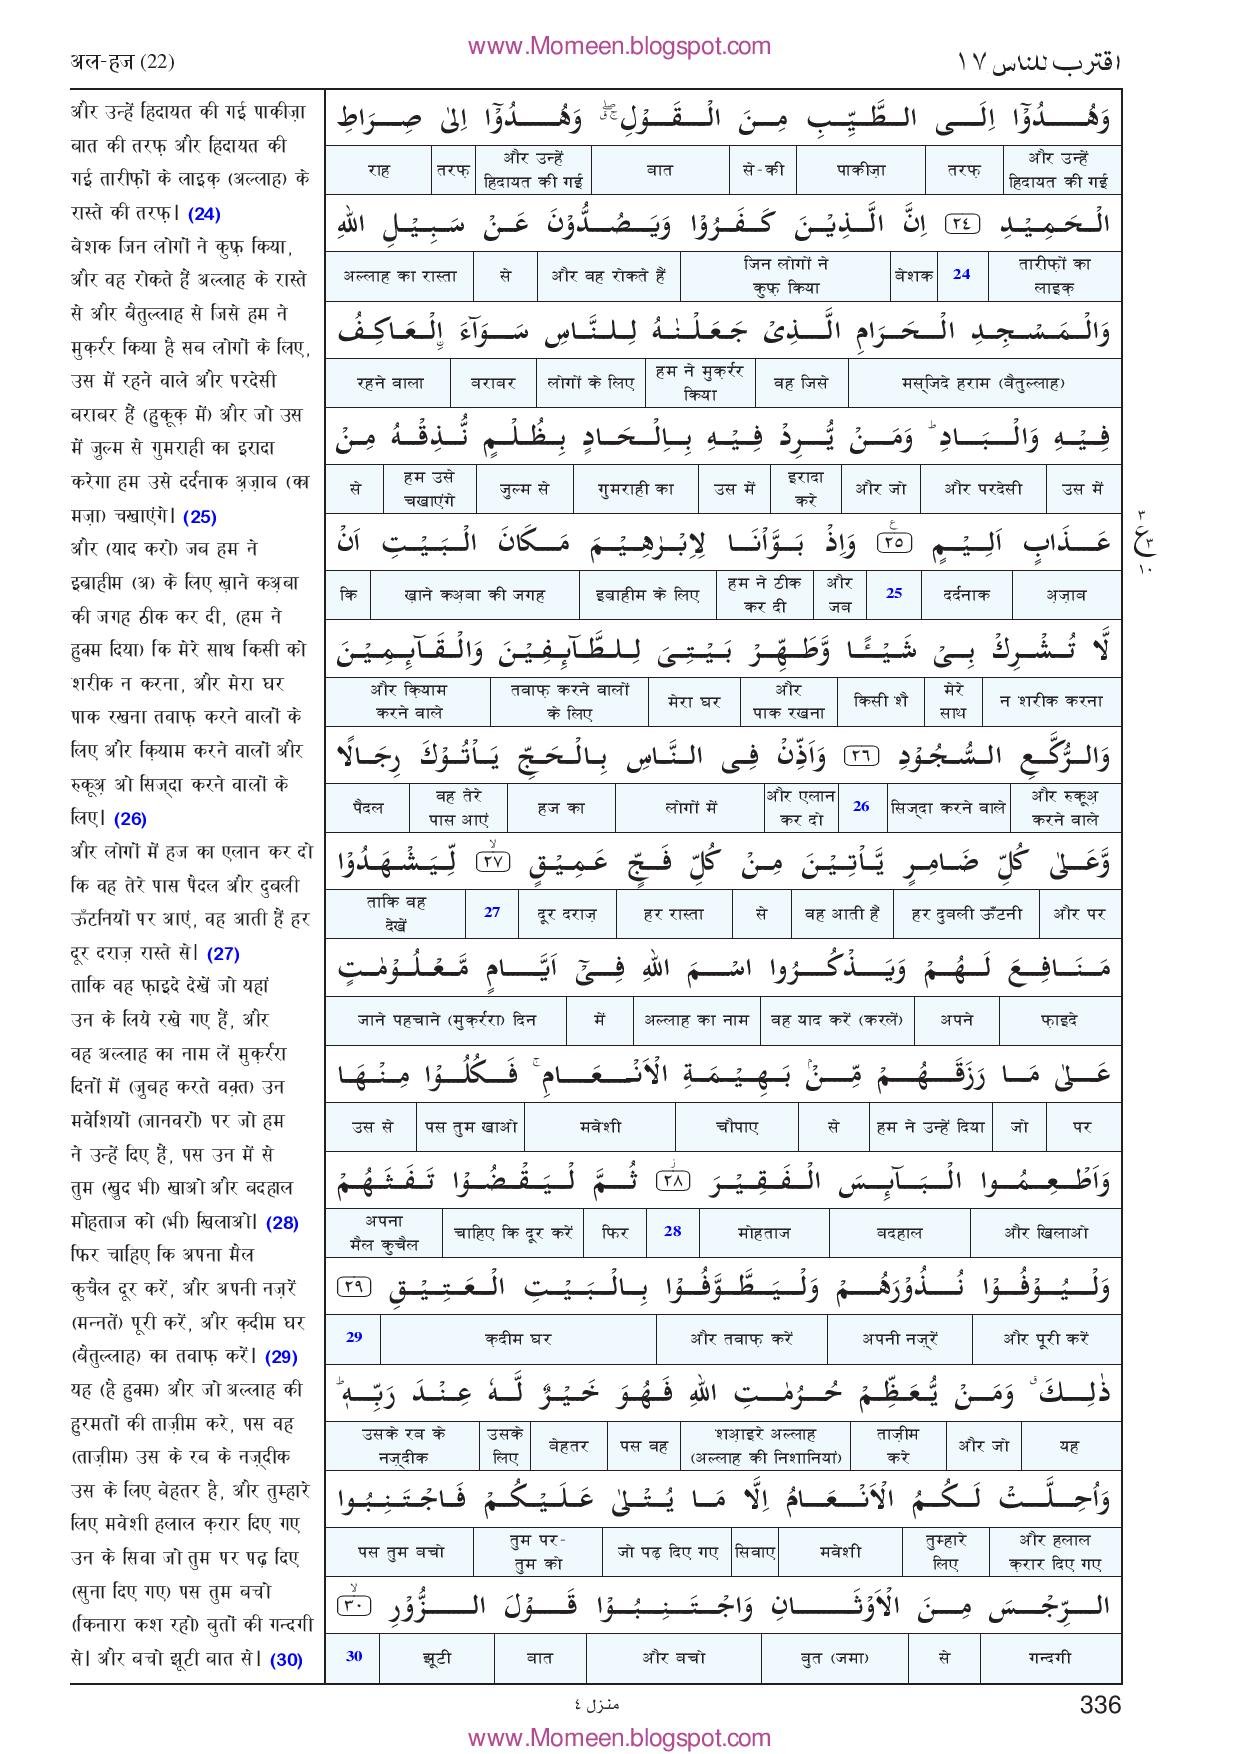 www.Momeen.blogspot.com
अल-हज (22)
اقترب للناس ١٧
और उन्हें हिदायत की गई पाकीज़ा
बात की तरफ़ और हिदायत की
गई तारीफ़ों के लाइक़ (अल्लाह) के
रास्ते की तरफ़। (24)
बेशक जिन लोगों ने कुफ़ किया,
और वह रोकते हैं अल्लाह के रास्ते
से और बैतुल्लाह से जिसे हम ने
मुक़र्रर किया है सब लोगों के लिए,
उस में रहने वाले और परदेसी
बराबर हैं (हुकूक़ में) और जो उस
में ज़ुल्म से गुमराही का इरादा
करेगा हम उसे दर्दनाक अ़ज़ाब (का
मज़ा) चखाएंगे। (25)
और (याद करो) जब हम ने
इब्राहीम (अ) के लिए ख़ाने कअ़बा
की जगह ठीक कर दी, (हम ने
हुक्म दिया) कि मेरे साथ किसी को
शरीक न करना, और मेरा घर
पाक रखना तवाफ़ करने वालों के
लिए और क़ियाम करने वालों और
रुकूअ़ ओ सिज्दा करने वालों के
लिए। (26)
और लोगों में हज का एलान कर दो
कि वह तेरे पास पैदल और दुबली
ऊँटनियों पर आएं, वह आती हैं हर
दूर दराज़ रास्ते से। (27)
ताकि वह फ़ाइदे देखें जो यहां
उन के लिये रखे गए हैं, और
वह अल्लाह का नाम लें मुक़र्ररा
दिनों में (ज़ुबह करते वक़्त) उन
मवेशियों (जानवरों) पर जो हम
ने उन्हें दिए हैं, पस उन में से
तुम (ख़ुद भी) खाओ और बदहाल
मोहताज को (भी) खिलाओ। (28)
फिर चाहिए कि अपना मैल
कुचैल दूर करें, और अपनी नज़रें
(मन्नतें) पूरी करें, और क़दीम घर
(बैतुल्लाह) का तवाफ़ करें। (29)
यह (है हुक्म) और जो अल्लाह की
हुरमतों की ताज़ीम करे, पस वह
(ताज़ीम) उस के रब के नज़्दीक
उस के लिए बेहतर है, और तुम्हारे
लिए मवेशी हलाल क़रार दिए गए
उन के सिवा जो तुम पर पढ़ दिए
(सुना दिए गए) पस तुम बचो
(किनारा कश रहो) बुतों की गन्दगी
से। और बचो झूटी बात से। (30)
وَهُدُوْٓا اِلَى الطَّيِّبِ مِنَ الْقَوْلِ ۖۚ وَهُدُوْٓا اِلٰى صِرَاطِ
और उन्हें हिदायत की गई तरफ़ पाकीज़ा से-की बात और उन्हें हिदायत की गई तरफ़ राह
الْحَمِيْدِ ٢٤ اِنَّ الَّذِيْنَ كَفَرُوْا وَيَصُدُّوْنَ عَنْ سَبِيْلِ اللهِ
तारीफ़ों का लाइक़ 24 बेशक जिन लोगों ने कुफ़ किया और वह रोकते हैं से अल्लाह का रास्ता
وَالْمَسْجِدِ الْحَرَامِ الَّذِيْ جَعَلْنٰهُ لِلنَّاسِ سَوَآءَ ۨالْعَاكِفُ
मस्जिदे हराम (बैतुल्लाह) वह जिसे हम ने मुक़र्रर किया लोगों के लिए बराबर रहने वाला
فِيْهِ وَالْبَادِ ؕ وَمَنْ يُّرِدْ فِيْهِ بِاِلْحَادٍ بِظُلْمٍ نُّذِقْهُ مِنْ
उस में और परदेसी और जो इरादा करे उस में गुमराही का ज़ुल्म से हम उसे चखाएंगे से
عَذَابٍ اَلِيْمٍ ٢٥ع وَاِذْ بَوَّاْنَا لِاِبْرٰهِيْمَ مَكَانَ الْبَيْتِ اَنْ
٣ ع ٣ ١٠
अ़ज़ाब दर्दनाक 25 और जब हम ने ठीक कर दी इब्राहीम के लिए ख़ाने कअ़बा की जगह कि
لَّا تُشْرِكْ بِيْ شَيْـًٔا وَّطَهِّرْ بَيْتِيَ لِلطَّآئِفِيْنَ وَالْقَآئِمِيْنَ
न शरीक करना मेरे साथ किसी शै और पाक रखना मेरा घर तवाफ़ करने वालों के लिए और क़ियाम करने वाले
وَالرُّكَّعِ السُّجُوْدِ ٢٦ وَاَذِّنْ فِي النَّاسِ بِالْحَجِّ يَاْتُوْكَ رِجَالًا
और रुकूअ़ करने वाले सिज्दा करने वाले 26 और एलान कर दो लोगों में हज का वह तेरे पास आएं पैदल
وَّعَلٰى كُلِّ ضَامِرٍ يَّاْتِيْنَ مِنْ كُلِّ فَجٍّ عَمِيْقٍ ٢٧ۙ لِّيَشْهَدُوْا
और पर हर दुबली ऊँटनी वह आती हैं से हर रास्ता दूर दराज़ 27 ताकि वह देखें
مَنَافِعَ لَهُمْ وَيَذْكُرُوا اسْمَ اللهِ فِيْٓ اَيَّامٍ مَّعْلُوْمٰتٍ
फ़ाइदे अपने वह याद करें (करलें) अल्लाह का नाम में जाने पहचाने (मुक़र्ररा) दिन
عَلٰى مَا رَزَقَهُمْ مِّنْۢ بَهِيْمَةِ الْاَنْعَامِ ۚ فَكُلُوْا مِنْهَا
पर जो हम ने उन्हें दिया से चौपाए मवेशी पस तुम खाओ उस से
وَاَطْعِمُوا الْبَآئِسَ الْفَقِيْرَ ٢٨ۡ ثُمَّ لْيَقْضُوْا تَفَثَهُمْ
और खिलाओ बदहाल मोहताज 28 फिर चाहिए कि दूर करें अपना मैल कुचैल
وَلْيُوْفُوْا نُذُوْرَهُمْ وَلْيَطَّوَّفُوْا بِالْبَيْتِ الْعَتِيْقِ ٢٩
और पूरी करें अपनी नज़्रें और तवाफ़ करें क़दीम घर 29
ذٰلِكَ ۗ وَمَنْ يُّعَظِّمْ حُرُمٰتِ اللهِ فَهُوَ خَيْرٌ لَّهٗ عِنْدَ رَبِّهٖ ؕ
यह और जो ताज़ीम करे शआ़इरे अल्लाह (अल्लाह की निशानियां) पस वह बेहतर उसके लिए उसके रब के नज़्दीक
وَاُحِلَّتْ لَكُمُ الْاَنْعَامُ اِلَّا مَا يُتْلٰى عَلَيْكُمْ فَاجْتَنِبُوا
और हलाल क़रार दिए गए तुम्हारे लिए मवेशी सिवाए जो पढ़ दिए गए तुम पर-तुम को पस तुम बचो
الرِّجْسَ مِنَ الْاَوْثَانِ وَاجْتَنِبُوْا قَوْلَ الزُّوْرِ ٣٠ۙ
गन्दगी से बुत (जमा) और बचो बात झूटी 30
منزل ٤
336
www.Momeen.blogspot.com